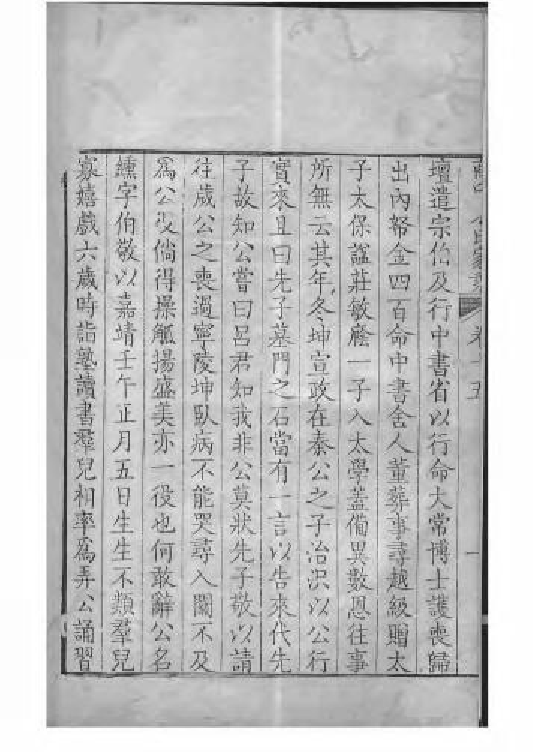 壇遣宗伯及行中書省以行命大常博士護喪歸
出內帑金四百命中書舍人董葬事尋越級贈太
子太保諡莊敏廕一子入太學蓋備異數恩往事
所無云其年冬坤宣政在泰公之子治沢以公行
實來且曰先子墓門之石當有一言以告來代先
子故知公嘗曰呂君知我非公莫狀先子敬以請
往歲公之喪過寧陵坤臥病不能哭尋入關不及
爲公役倘得操觚揚盛美亦一役也何敢辭公名
纁字伯敬以嘉靖壬午正月五日生生不類羣兒
寡嬉戲六歲時詣塾讀書羣兒相率爲弄公誦習